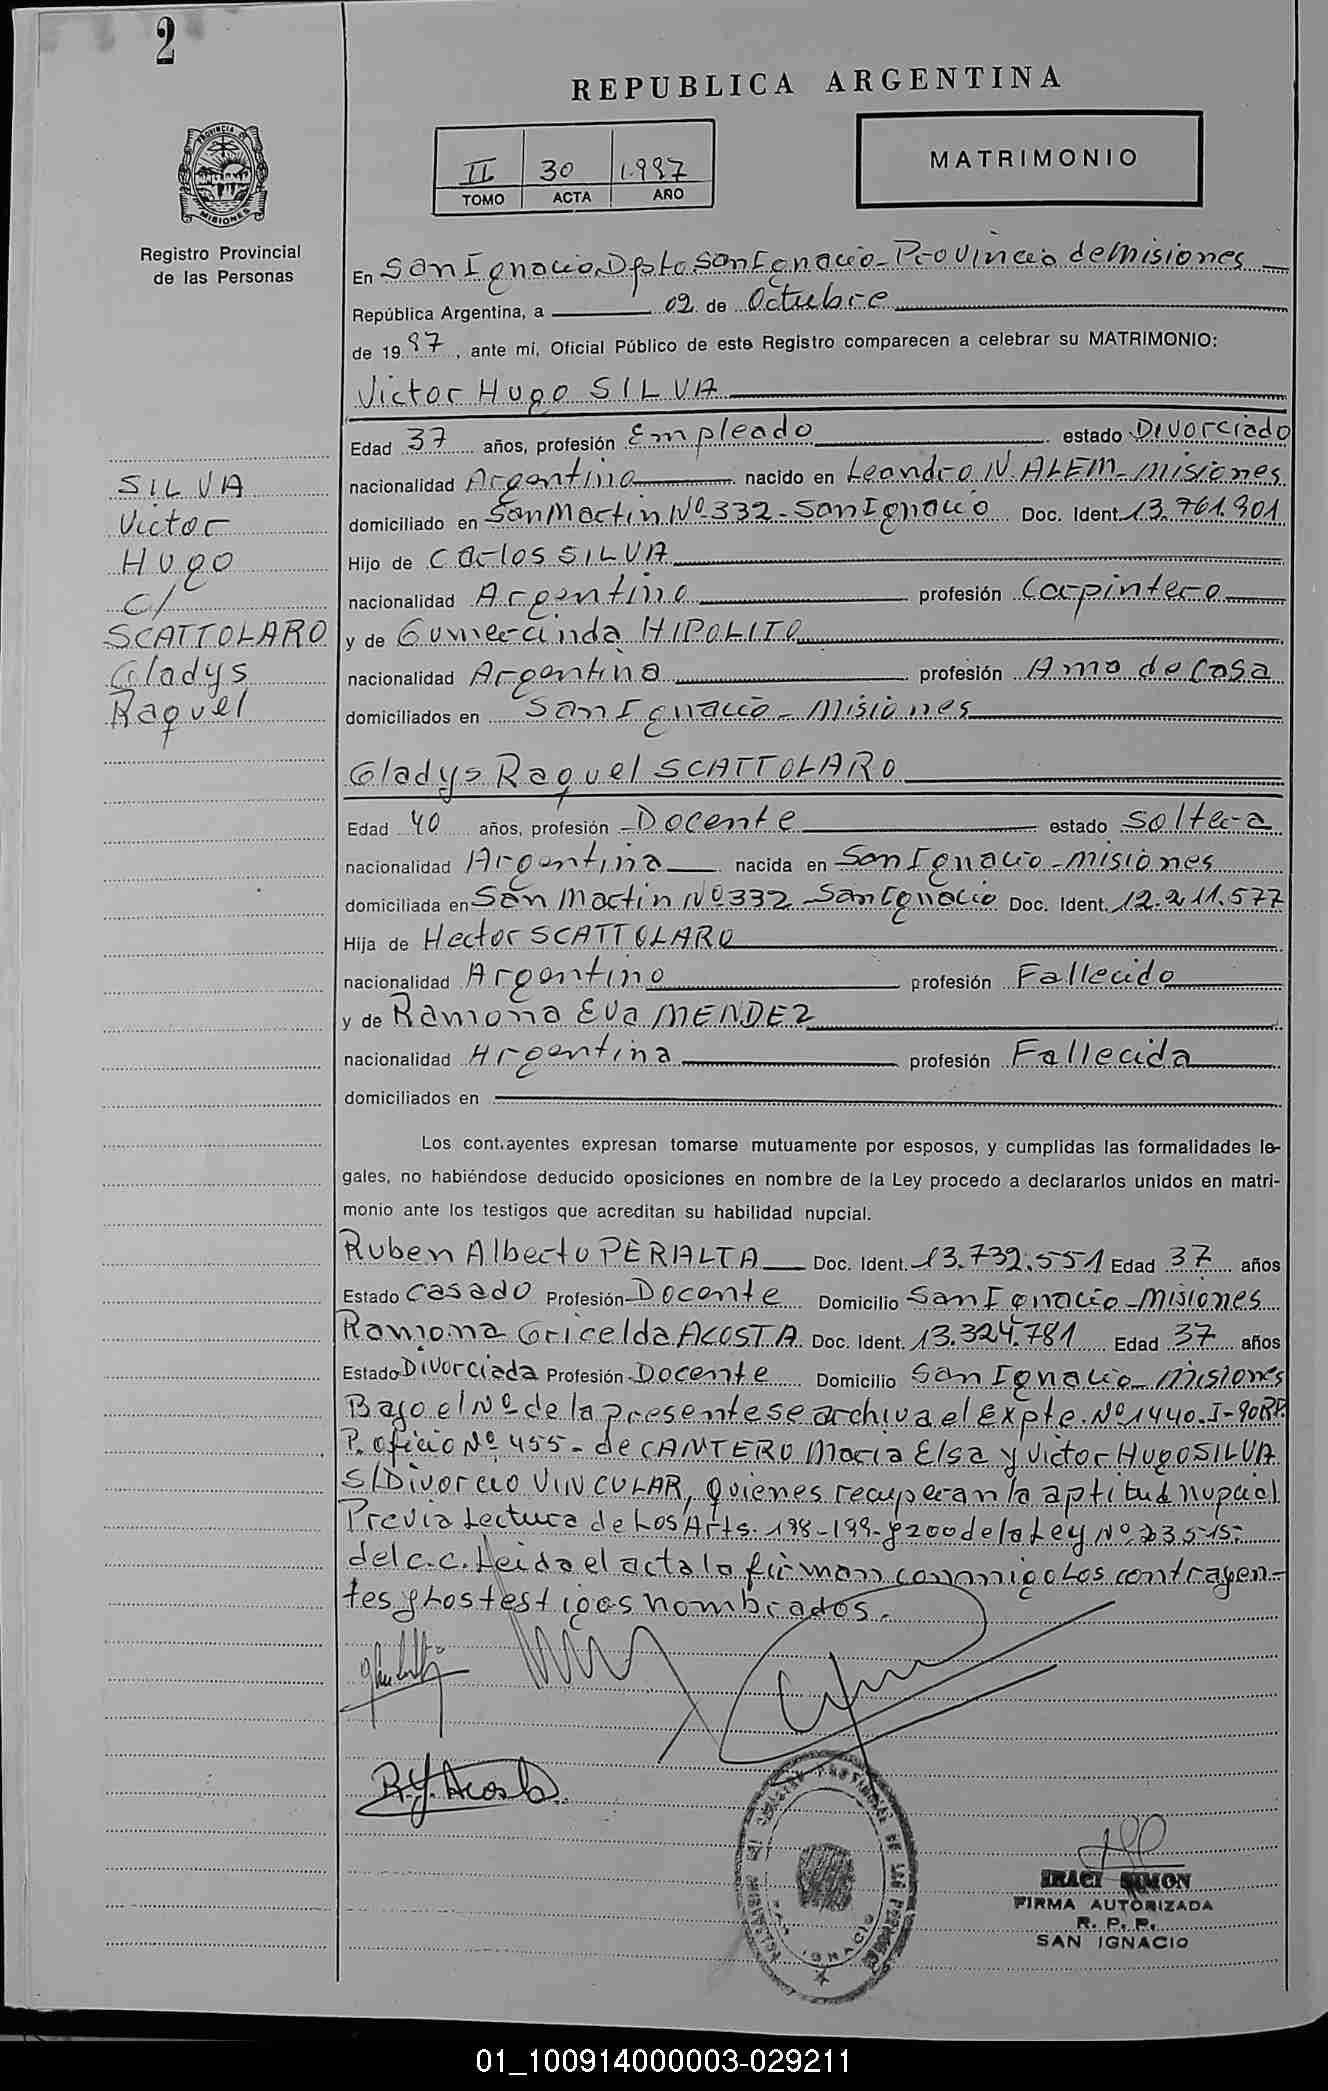 2
REPUBLICA ARGENTINA
II 30 1.997
TOMO ACTA AÑO
MATRIMONIO
PROVINCIA DE MISIONES
Registro Provincial
de las Personas
En San Ignacio Dpto San Ignacio - Provincia de Misiones
República Argentina, a 02 de Octubre
de 1997, ante mí, Oficial Público de este Registro comparecen a celebrar su MATRIMONIO:
Victor Hugo SILVA
Edad 37 años, profesión Empleado estado Divorciado
nacionalidad Argentino nacido en Leandro N. ALEM - Misiones
domiciliado en San Martin Nº 332 - San Ignacio Doc. Ident. 13.761.901
Hijo de Carlos SILVA
nacionalidad Argentino profesión Carpintero
y de Gumercinda HIPOLITO
nacionalidad Argentina profesión Ama de Casa
domiciliados en San Ignacio - Misiones
SILVA
Victor
Hugo
C/
SCATTOLARO
Gladys
Raquel
Gladys Raquel SCATTOLARO
Edad 40 años, profesión Docente estado Soltera
nacionalidad Argentina nacida en San Ignacio - Misiones
domiciliada en San Martin Nº 332 - San Ignacio Doc. Ident. 12.211.577
Hija de Hector SCATTOLARO
nacionalidad Argentino profesión Fallecido
y de Ramona Eva MENDEZ
nacionalidad Argentina profesión Fallecida
domiciliados en
Los contrayentes expresan tomarse mutuamente por esposos, y cumplidas las formalidades le-
gales, no habiéndose deducido oposiciones en nombre de la Ley procedo a declararlos unidos en matri-
monio ante los testigos que acreditan su habilidad nupcial.
Ruben Alberto PERALTA Doc. Ident. 13.732.551 Edad 37 años
Estado Casado Profesión Docente Domicilio San Ignacio - Misiones
Ramona Gricelda ACOSTA Doc. Ident. 13.324.781 Edad 37 años
Estado Divorciada Profesión Docente Domicilio San Ignacio - Misiones
Bajo el Nº de la presente se archiva el Expte. Nº 1440-I-90 RP
P. Oficio Nº 455 - de CANTERO Maria Elsa y Victor Hugo SILVA
S/Divorcio VINCULAR, quienes recuperan la aptitud nupcial
Previa Lectura de Los Arts. 198-199-y 200 de la Ley Nº 23515-
del C.C. Leida el acta la firman conmigo Los contrayen-
tes y Los testigos nombrados.
R.G. Acosta
REGISTRO PROVINCIAL DE LAS PERSONAS
SAN IGNACIO
IRACI SIMON
FIRMA AUTORIZADA
R. P. P.
SAN IGNACIO
01_100914000003-029211